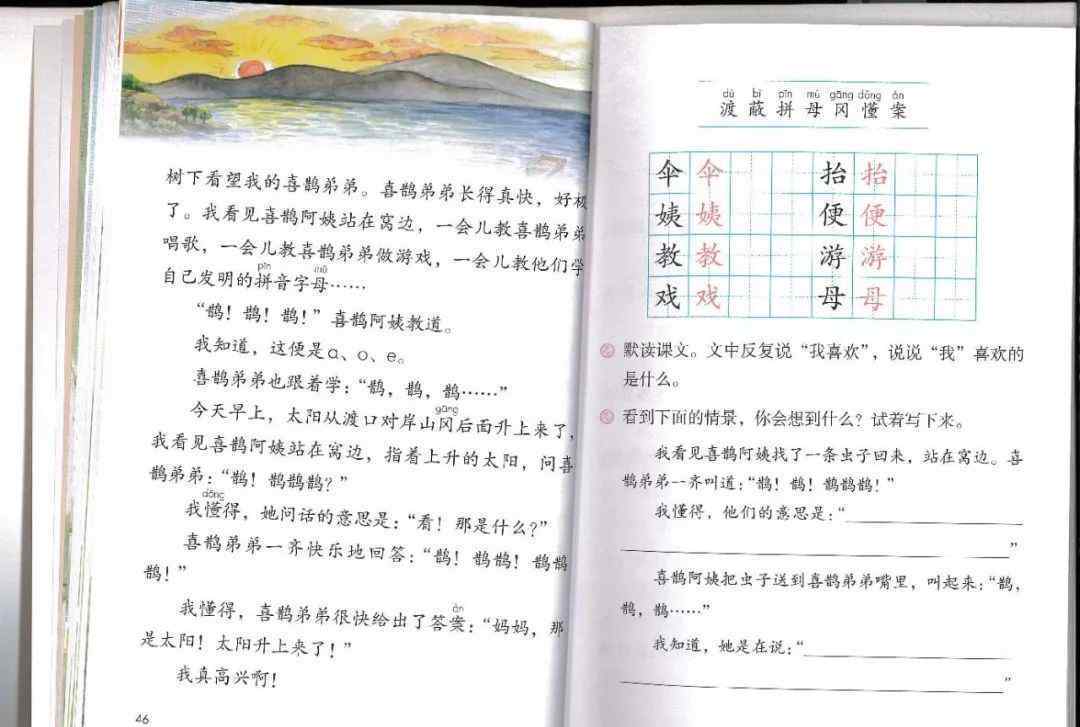 树下看望我的喜鹊弟弟。喜鹊弟弟长得真快，好极
了。我看见喜鹊阿姨站在窝边，一会儿教喜鹊弟弟
唱歌，一会儿教喜鹊弟弟做游戏，一会儿教他们学
pīn mǔ
自己发明的拼音字母……
“鹊！鹊！鹊！”喜鹊阿姨教道。
我知道，这便是ɑ、o、e。
喜鹊弟弟也跟着学：“鹊，鹊，鹊……”
gāng
今天早上，太阳从渡口对岸山冈后面升上来了，
我看见喜鹊阿姨站在窝边，指着上升的太阳，问喜
鹊弟弟：“鹊！鹊鹊鹊？”
dǒng
我懂得，她问话的意思是：“看！那是什么？”
喜鹊弟弟一齐快乐地回答：“鹊！鹊鹊！鹊鹊
鹊！”
àn
我懂得，喜鹊弟弟很快给出了答案：“妈妈，那
是太阳！太阳升上来了！”
我真高兴啊！
46
dù bì pīn mǔ gāng dǒng àn
渡 蔽 拼 母 冈 懂 案
伞 伞 抬 抬
姨 姨 便 便
教 教 游 游
戏 戏 母 母
默读课文。文中反复说“我喜欢”，说说“我”喜欢的
是什么。
看到下面的情景，你会想到什么？试着写下来。
我看见喜鹊阿姨找了一条虫子回来，站在窝边。喜
鹊弟弟一齐叫道：“鹊！鹊！鹊鹊鹊！”
我懂得，他们的意思是：“
”
喜鹊阿姨把虫子送到喜鹊弟弟嘴里，叫起来：“鹊，
鹊，鹊……”
我知道，她是在说：“
”